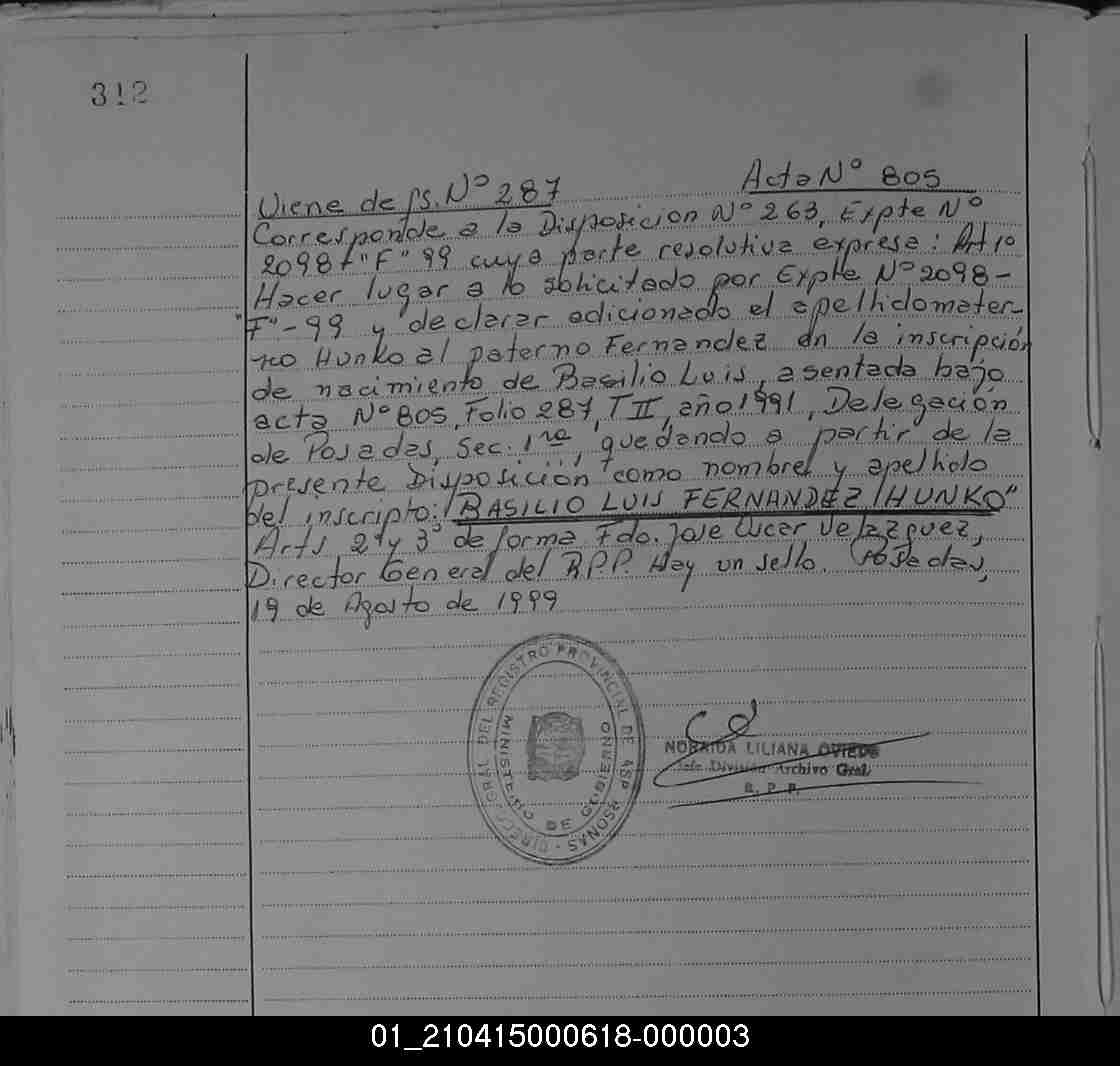 312
Viene de fs. Nº 287 Acta Nº 805
Corresponde a la Disposicion Nº 263, Expte Nº
2098 "F" 99 cuya parte resolutiva expresa: Art 1º
Hacer lugar a lo solicitado por Expte Nº 2098-
"F"-99 y declarar adicionado el apellido mater-
no Hunko al paterno Fernandez en la inscripción
de nacimiento de Basilio Luis, asentada bajo
acta Nº 805, Folio 287, T II, año 1991, Delegación
de Posadas, Sec. 1ra, quedando a partir de la
presente Disposición como nombre y apellido
del inscripto: "BASILIO LUIS FERNANDEZ HUNKO"
Arts 2º y 3º de forma Fdo. Jose Velazquez,
Director General del R.P.P. Hay un sello. Posadas,
19 de Agosto de 1999
DIREC. GRAL. DEL REGISTRO PROVINCIAL DE LAS PERSONAS
MINISTERIO DE GOBIERNO
NORAIDA LILIANA OVIEDO
Jefe División Archivo Gral.
R. P. P.
01_210415000618-000003